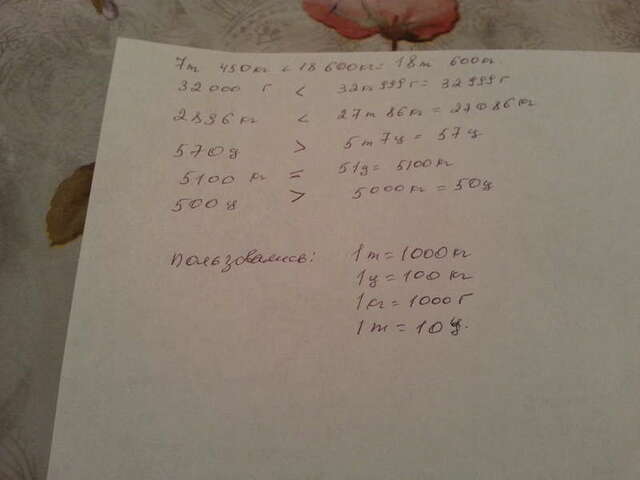 7т 450кг < 18 600кг = 18т 600кг.
32 000 г < 32кг 999г = 32 999 г
2896 кг < 27т 86кг = 27086 кг
570ц > 5т 7ц = 57 ц
5100 кг = 51ц = 5100кг
500 ц > 5000кг = 50ц
Пользовались: 1т = 1000 кг
1ц = 100 кг
1кг = 1000 г
1т = 10 ц.